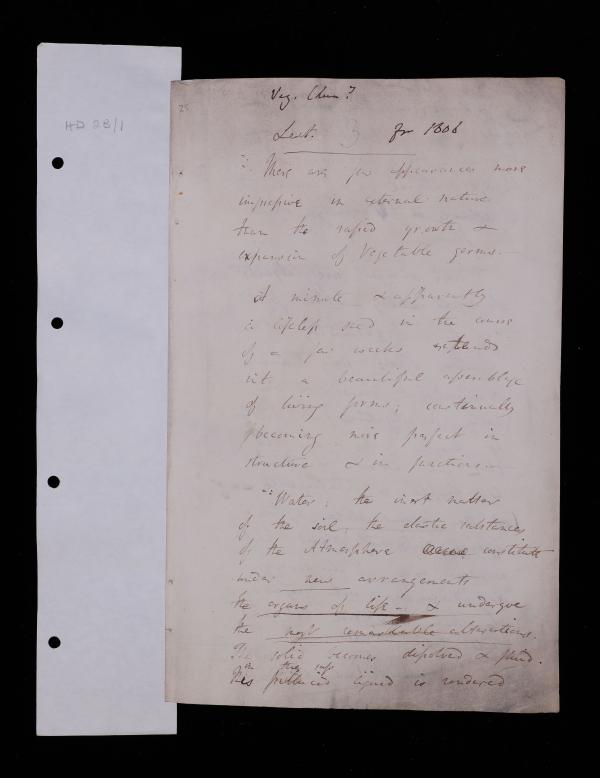 HD 2B/1
25
Veg. Chem?
Lect. 3 for 1808
There are few appearances more
impressive in external nature
than the rapid growth &
expansion of Vegetable germs.—
A minute & apparently
a lifeless seed in the course
of a few weeks extends
into a beautiful assemblage
of living forms; continually
becoming more perfect in
structure & in functions.—
Water; the inert matter
of the soil, the elastic substances
of the Atmosphere constitute
under new arrangements
the organs of life - & undergo
the most remarkable alterations.
The solid becomes dissolved & fluid.
in the sap
This liquid is rendered